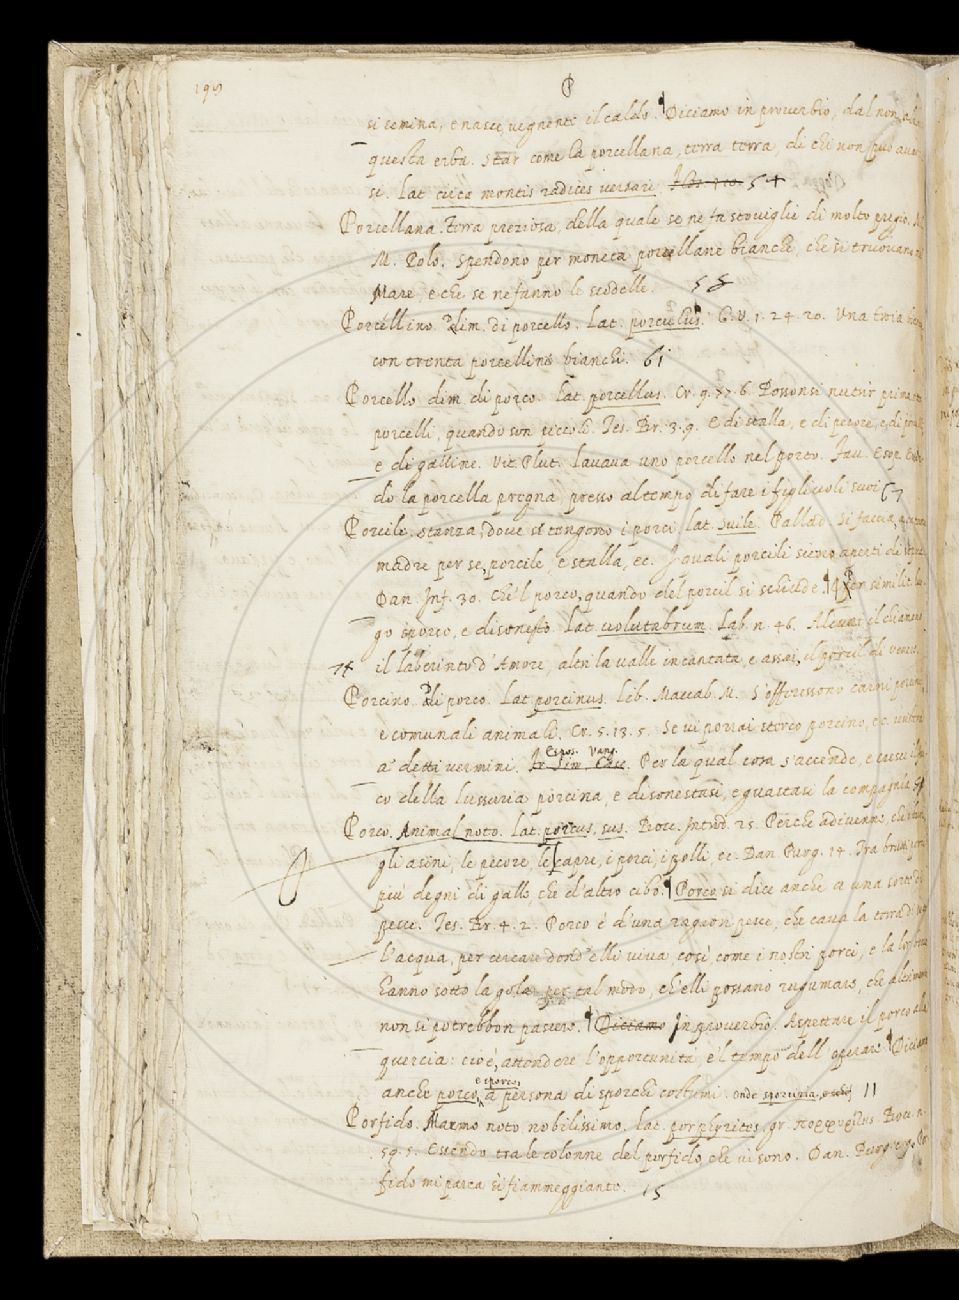 199
P
si semina, e nasce, vegnente il caldo. Diciamo in proverbio, dal non
questa erba. Star come la porcellana, terra terra, di chi non può avan
si. Lat. circa montis radices versari. 54
Porcellana. Terra preziosa, della quale se ne fa stoviglie di molto pregio. M.
M. Polo. Spendono per moneta porcellane bianche, che si truovano nel
Mare, e che se ne fanno le scodelle. 58
Porcellino. dim. di porcello. Lat. porculus. G. V. 1. 24. 20. Una troia
con trenta porcellini bianchi. 61
Porcello. dim. di porco. Lat. porcellus. Cr. 9. 77. 6. Possonsi nutrir
porcelli, quando son piccoli. Tes. Br. 3. 9. E di stalla, e di pecore, e di
e di galline. Vit. Plut. Lavava uno porcello nel porto. Fav. Esop.
do la porcella pregna, presso al tempo di fare i figliuoli suoi 67
Porcile. stanza, dove si tengono i porci. Lat. suile. Pallad. Si faccia
madre per se, porcile, e stalla, ec. I quali porcili sieno aperti di
Dan. Inf. 30. Che 'l porco, quando del porcil si schiude. Per similit. luo
go sporco, e disonesto. Lat. volutabrum. Lab. n. 46. Alcuni il chiamano
74 il laberinto d'Amore, altri la valle incantata, e assai, il porcil di Venere.
Porcino. di porco. Lat. porcinus. Lib. Maccab. M. S'offerissono carni porcine,
e comunali animali. Cr. 5. 13. 5. Se vi porrai sterco porcino, ec.
a' detti vermini. Espos. Vang. Per la qual cosa s'accende, e cresce il
co della lussuria porcina, e disonestasi, e guastasi la compagnia
Porco. Animal noto. Lat. porcus, sus. Bocc. Introd. 25. Perche adivenne, che i buoi,
gli asini, le pecore, le capre, i porci, i polli, ec. Dan. Purg. 14. Tra brutti porci
più degni di galle, che d'altro cibo. Porco si dice anche a una sorta di
pesce. Tes. Br. 4. 2. Porco è d'una ragion pesce, che cava la terra di sotto
l'acqua, per cercare dond'elli viva, così, come i nostri porci, e la lor bocca
hanno sotto la gola, per tal modo, ch'elli possano rugumare, che altrimenti
non si potrebbon pascere. Diciamo In proverbio. Aspettare il porco alla
quercia: cioè, attendere l'opportunità, e 'l tempo dell'operare. Diciamo
anche porco, e sporco, a persona di sporchi costumi. onde sporcizia, 11
Porfido. Marmo noto nobilissimo. Lat. porphyrites, gr. πορφυρίτης. Bocc. n.
59. 5. Essendo tra le colonne del porfido, che vi sono. Dan. Purg. 9. Por
fido mi parea sì fiammeggiante. 15